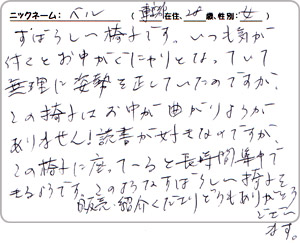 ニックネーム: ベル (東京在住、28歳、性別: 女)
すばらしい椅子です。いつも気が
付くとお中がぐにゃりとなっていて
無理に姿勢を正していたのですが、
この椅子はお中が曲がりようが
ありません!読書が好きなのですが、
この椅子に座っていると長時間集中で
きるようです。このようなすばらしい椅子を
販売・紹介くださりどうもありがとう
ございます。